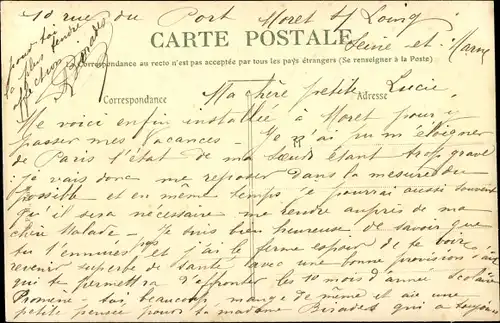 10 rue du Port Moret s/ Loing
Seine et Marne
CARTE POSTALE
La correspondance au recto n'est pas acceptée par tous les pays étrangers (Se renseigner à la Poste)
Correspondance
Adresse
Ma chère petite Lucie
Me voici enfin installée à Moret pour y
passer mes vacances - Je n'ai pu m'éloigner
de Paris l'état de ma sœur étant trop grave
je vais donc me reposer dans la mesure du
possible et en même temps je pourrai aussi souvent
qu'il sera nécessaire me rendre auprès de ma
chère malade - Je suis bien heureuse de savoir que
tu t'ennuies pas et j'ai le ferme espoir de te voir
revenir superbe de santé avec une bonne provision d'air
qui te permettra d'affronter les 10 mois d'année scolaire
Promène-toi beaucoup, mange de même et aie une
petite pensée pour ta madame qui a toujours
pour toi
la plus tendre
affection